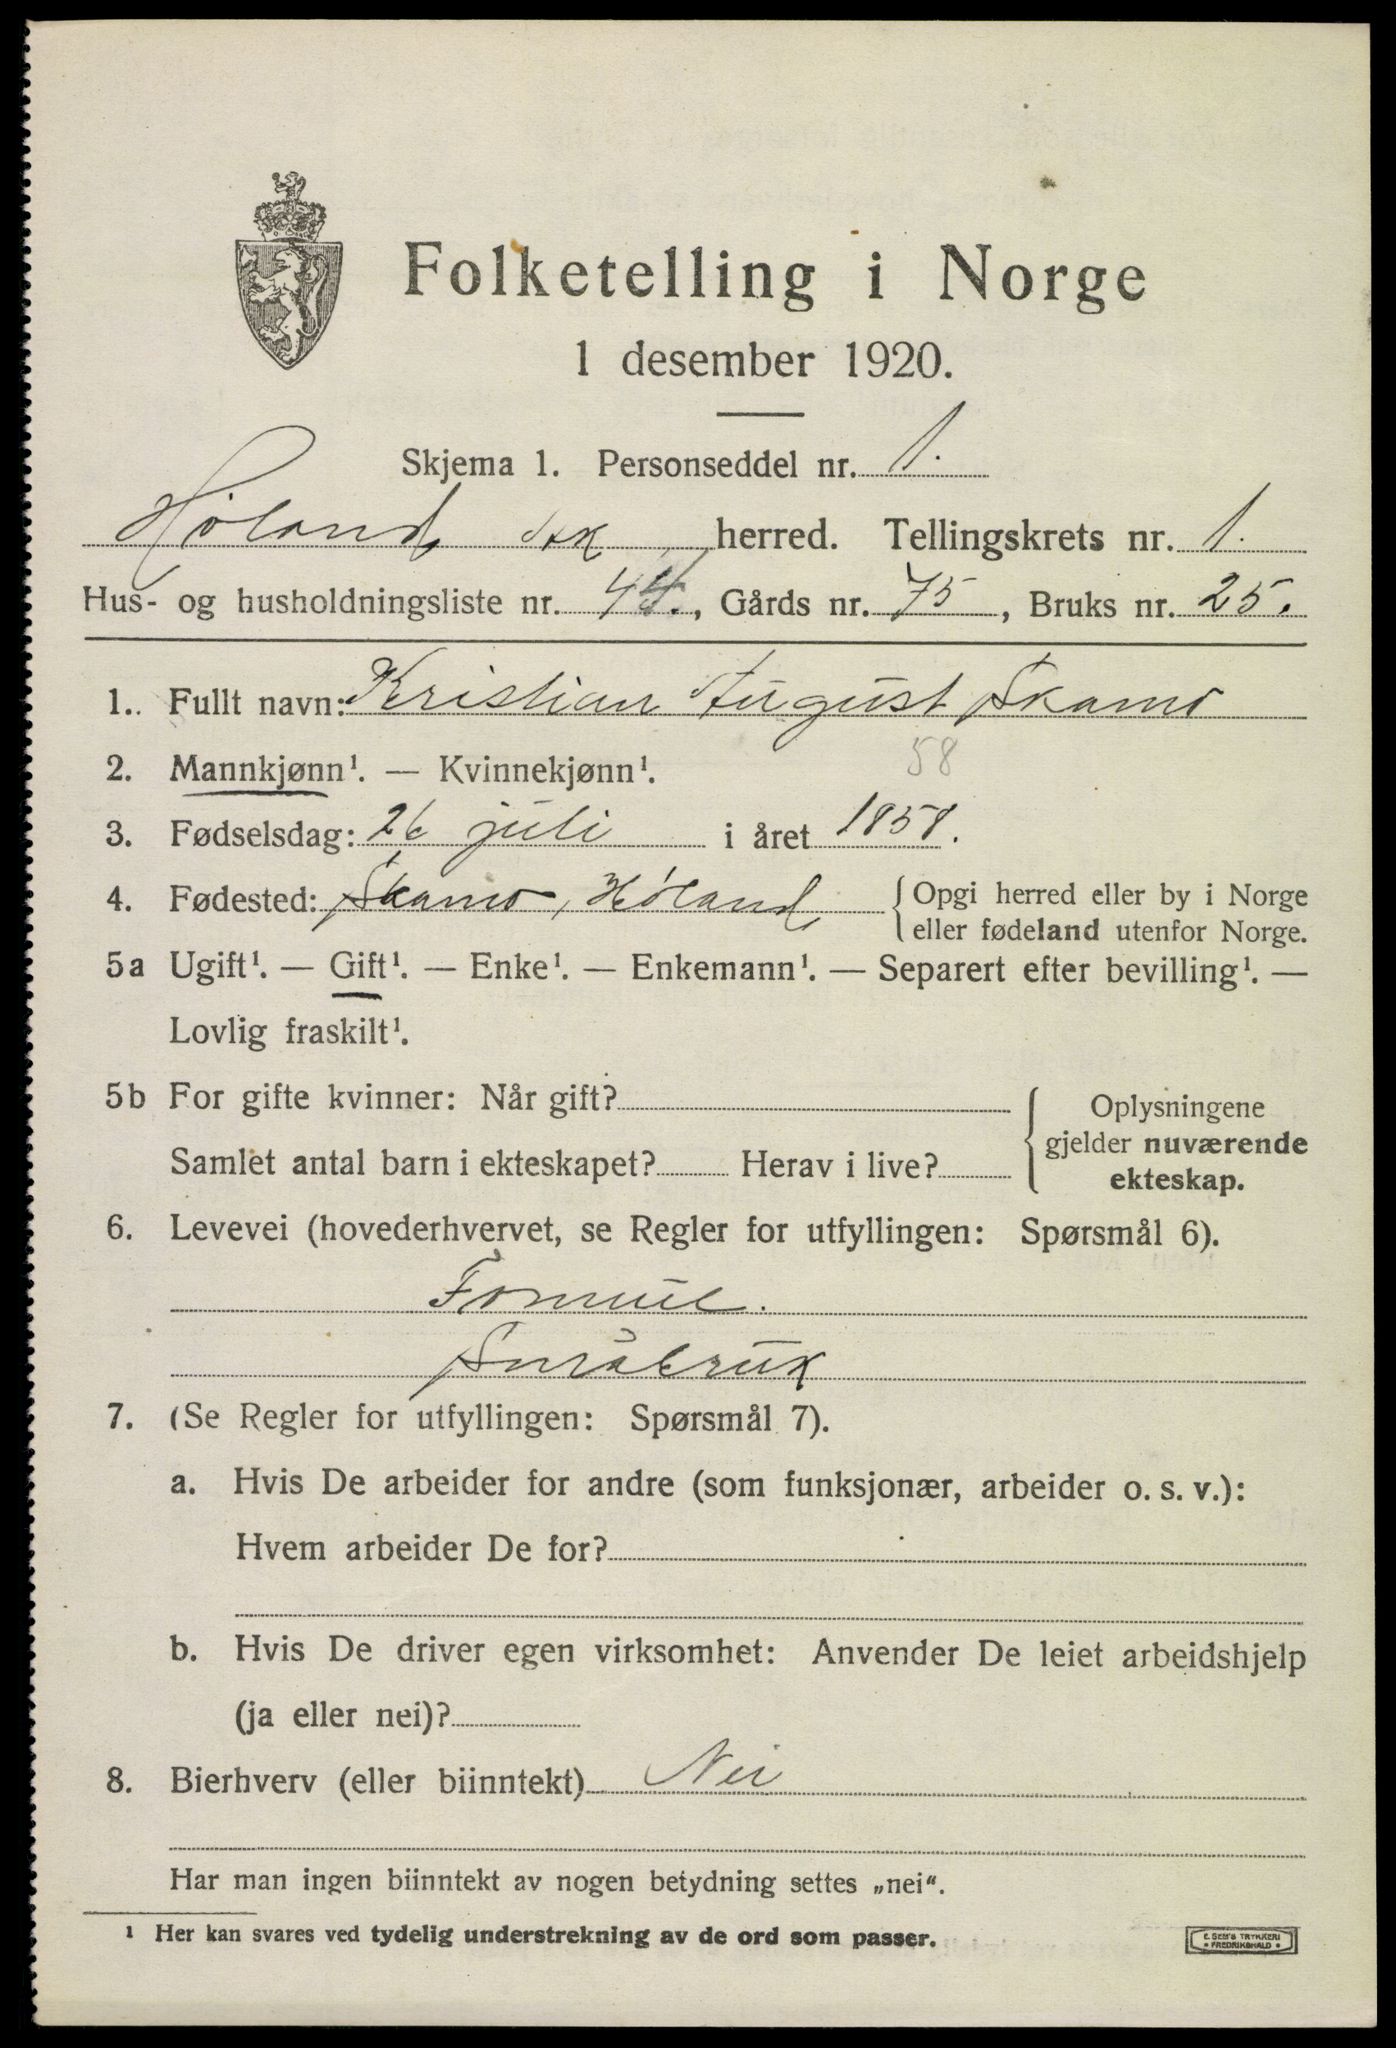 Folketelling i Norge
1 desember 1920.
Skjema 1. Personseddel nr. 1.
Høland herred. Tellingskrets nr. 1.
Hus- og husholdningsliste nr. 44., Gårds nr. 75, Bruks nr. 25.
1. Fullt navn: Kristian August Skamo
2. Mannkjønn¹. — Kvinnekjønn¹. 58
3. Fødselsdag: 26 juli i året 1858.
4. Fødested: Skamo, Høland { Opgi herred eller by i Norge
eller fødeland utenfor Norge.
5a Ugift¹. — Gift¹. — Enke¹. — Enkemann¹. — Separert efter bevilling¹. —
Lovlig fraskilt¹.
5b For gifte kvinner: Når gift?
Samlet antal barn i ekteskapet? Herav i live?
{ Oplysningene
gjelder nuværende
ekteskap.
6. Levevei (hovederhvervet, se Regler for utfyllingen: Spørsmål 6).
Småbruk
7. (Se Regler for utfyllingen: Spørsmål 7).
a. Hvis De arbeider for andre (som funksjonær, arbeider o. s. v.):
Hvem arbeider De for?
b. Hvis De driver egen virksomhet: Anvender De leiet arbeidshjelp
(ja eller nei)?
8. Bierhverv (eller biinntekt) Nei
Har man ingen biinntekt av nogen betydning settes „nei“.
¹ Her kan svares ved tydelig understrekning av de ord som passer.
E. SEM'S TRYKKERI
• FREDRIKSHALD •